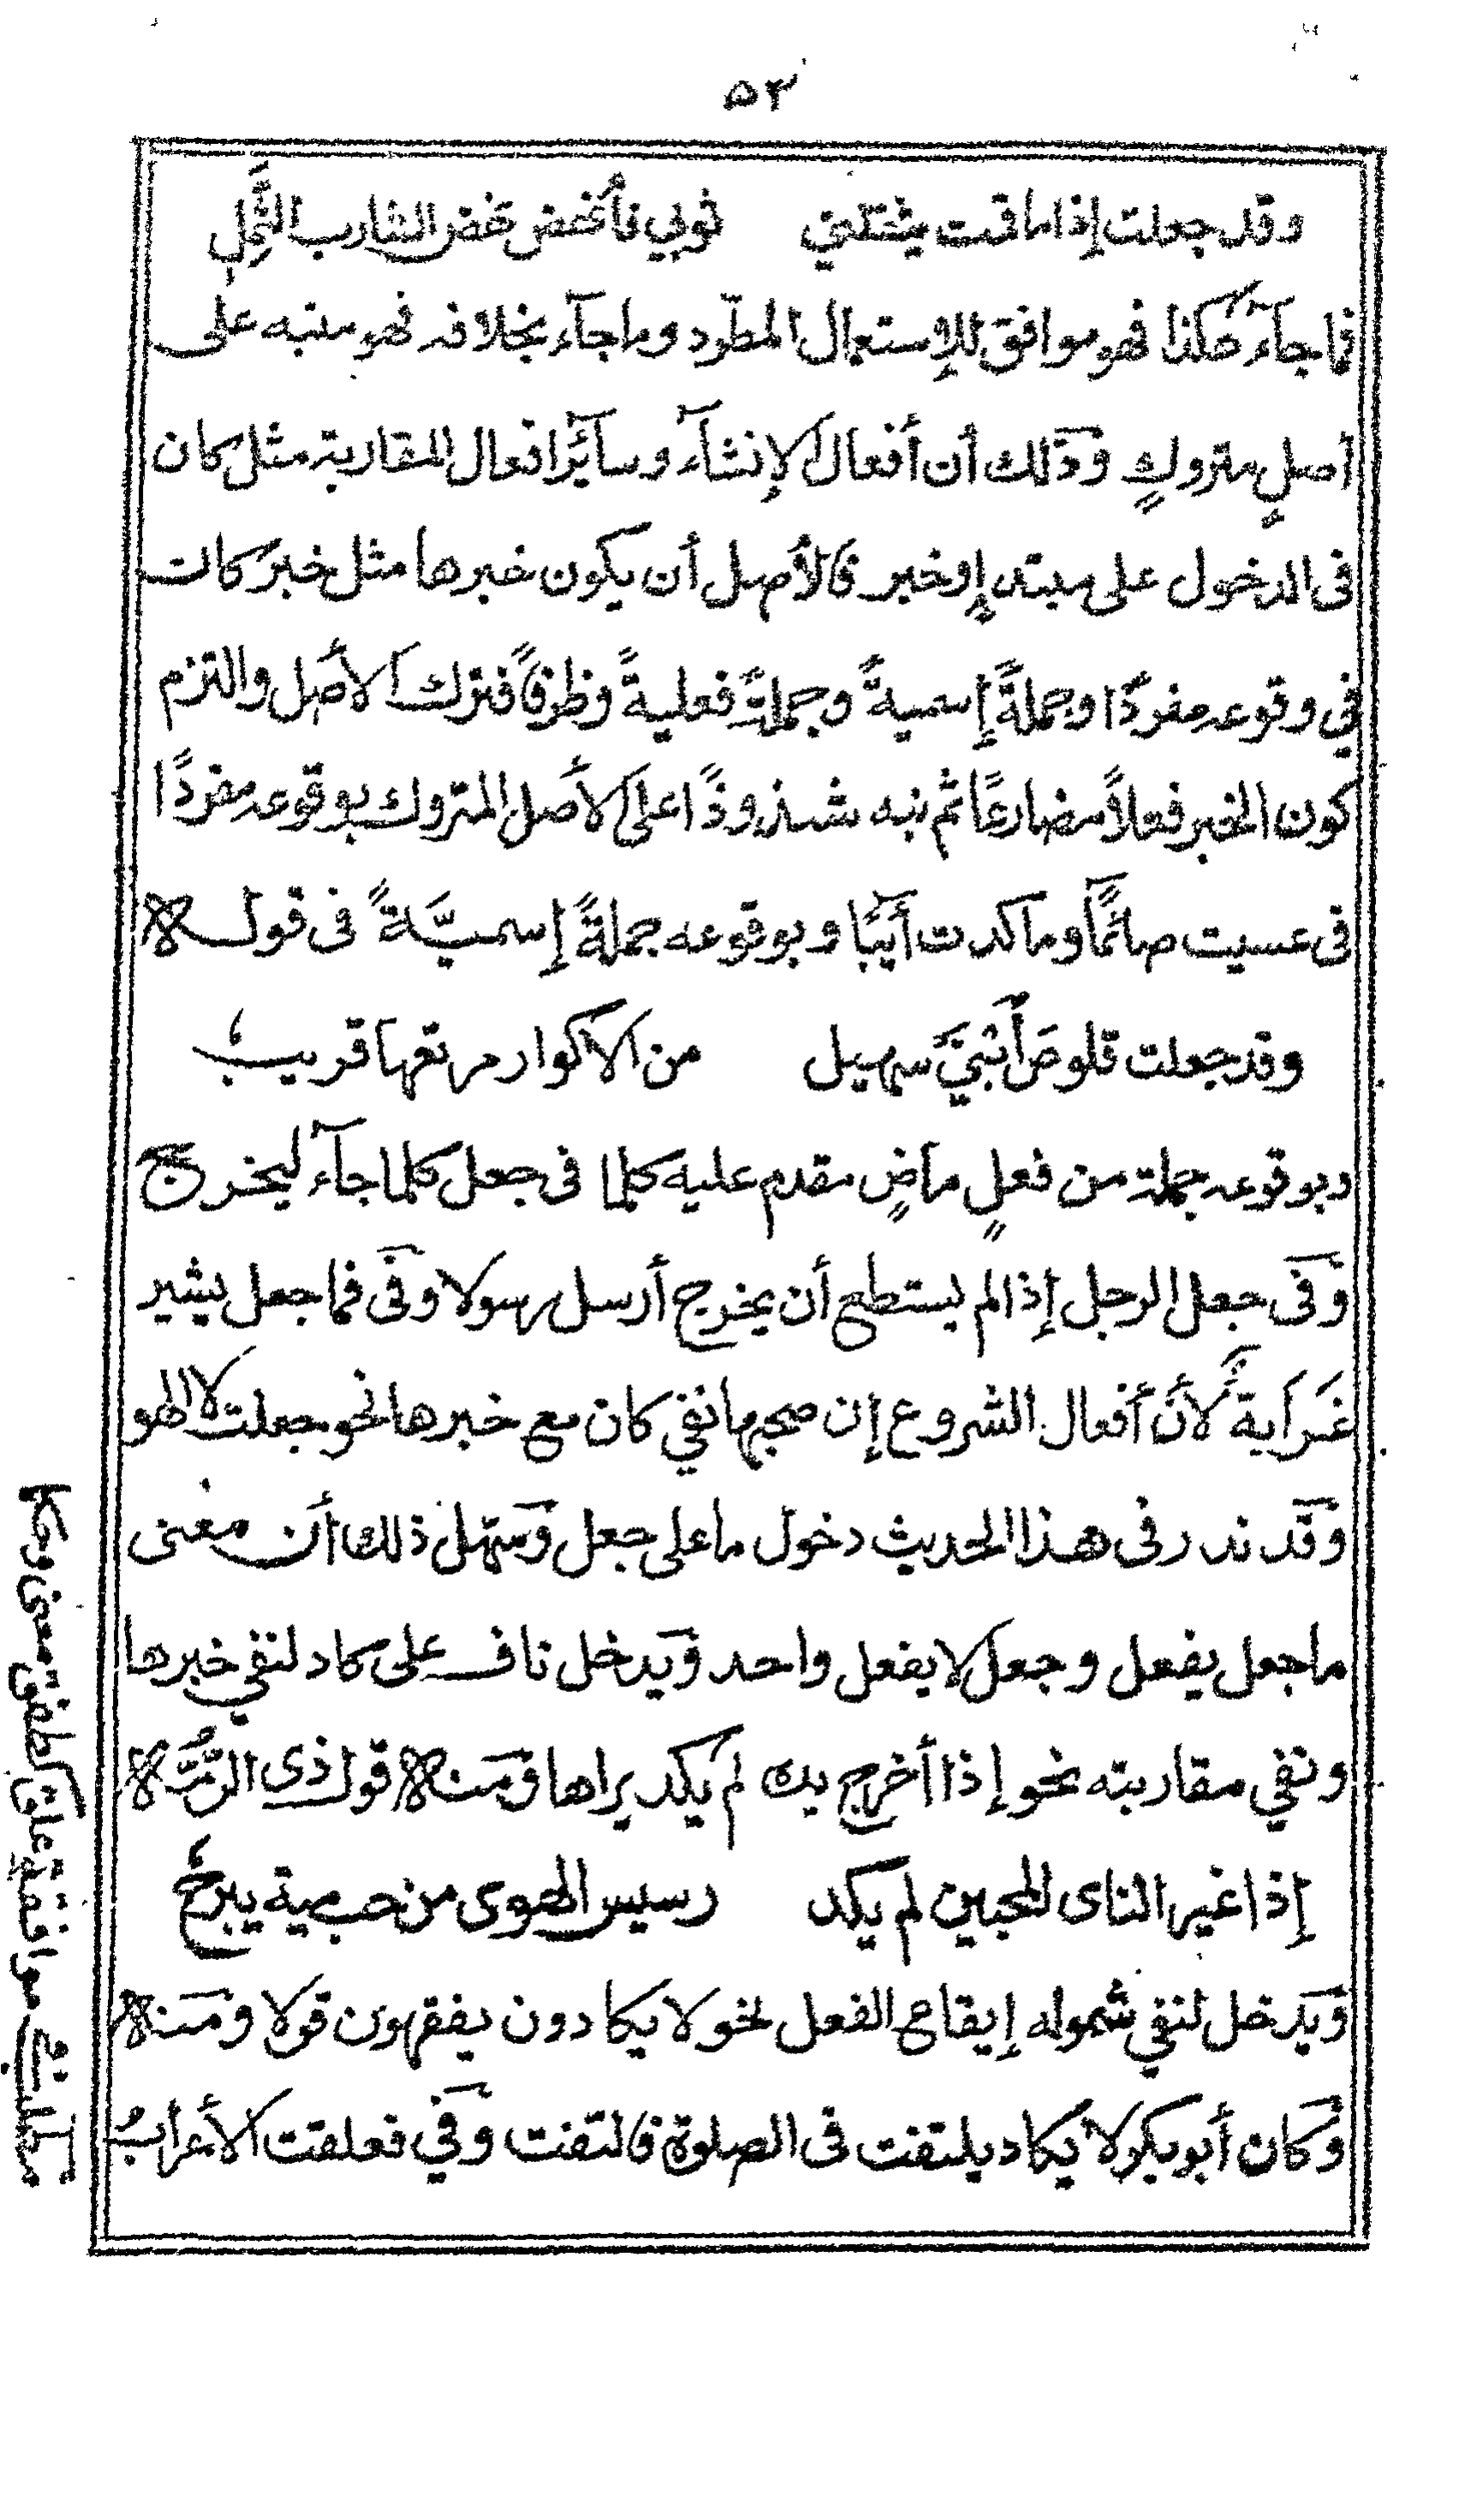 ٥٣
وقد جعلت إذا ما قمت يثقلني ثوبي فأنهض نهض الشارب الثَّمِلِ
فما جآءَ هكذا فهو موافق للإستعمال المطّرد وما جآء بخلافه فهو منبه على
أصلٍ متروكٍ وذلك أن أفعال الإنشآء وسآئر افعال المقاربة مثل كان
فى الدخول على مبتدإٍ وخبر فالأصل أن يكون خبرها مثل خبر كان
في وقوعه مفردًا وجملةً إسميةً وجملةً فعليةً وظرفًا فترك الأصل والتزم
كون الخبر فعلاً مضارعًا ثم نبه شذوذًا على الأصل المتروك بوقوعه مفردًا
فى عسيت صائمًا وما كدت أئبًا وبوقوعه جملةً إسميَّةً فى قوله
وقد جعلت قلوصَ أبنَيْ سهيل من الأكوار مرتعها قريب
وبوقوعه جملة من فعلٍ ماضٍ مقدم عليه كلما فى جعل كلما جآء ليخرج
وفى جعل الرجل إذا لم يستطع أن يخرج أرسل رسولا وفى فما جعل يشير
غَرَابةٌ لأنّ أفعال الشروع إن صحبها نفي كان مع خبرها نحو جعلت لا الهو
وقد ندر فى هذا الحديث دخول ما على جعل وسهل ذلك أن معنى
ما جعل يفعل وجعل لا يفعل واحد ويدخل ناف على كاد لنفي خبرها
ونفي مقاربته نحو إذا أخرج يده لم يكد يراها ومنه قول ذى الرُّمَّة
إذا غير الناى المحبين لم يكد رسيس الهوى من حب مية يبرح
ويدخل لنفي شموله إيقاع الفعل نحو لا يكادون يفقهون قولا ومنه
وكان أبو بكر لا يكاد يلتفت فى الصلوة فالتفت وفي فعلقت الأعرابُ